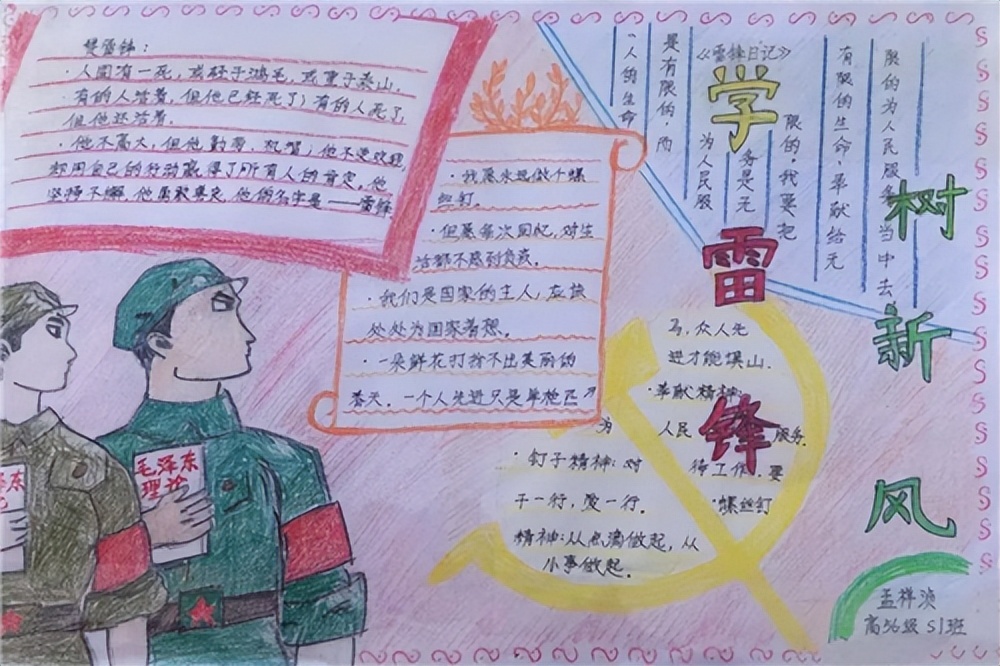 雷锋:
·人固有一死，或轻于鸿毛，或重于泰山.
有的人活着，但他已经死了；有的人死了
但他还活着.
·他不高大，但他勤劳、
却用自己的行动赢得了所有人的肯定，他
坚持不懈，他勇敢 他的名字是——雷锋
·我愿永远做个螺
丝钉。
·但愿每次回忆，对生
活都不感到负疚。
·我们是国家的主人，应该
处处为国家着想。
·一朵鲜花打扮不出美丽的
春天，一个人先进只是单枪匹
马，众人先
进才能 山.
·奉献精神:
为人民服务.
·钉子精神: 对待工作，要
干一行，爱一行.
·螺丝钉
精神:从点滴做起，从
小事做起.
《雷锋日记》
“人的生命
是有限的，而
为人民服
务是无
限的，我要把
有限的生命，奉献给无
限的为人民服务当中去
学
雷
锋
树
新
风
毛泽东
理论
泽东
孟祥
高56级 51班